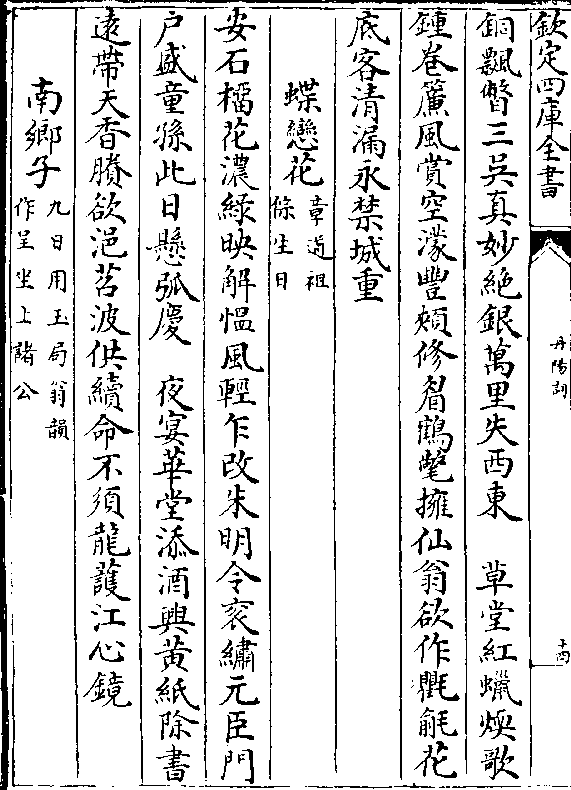 欽定四庫全書
丹陽詞
十四
銅瓢瞥三吳真妙絶銀萬里失西東　草堂紅蠟煥歌
鍾巻簾風賞空濛豐頰修眉鶴氅擁仙翁欲作氍毹花
底客清漏永禁城重
蝶戀花
章道祖
倅生日
安石榴花濃緑映解愠風輕乍改朱明令衮繡元臣門
户盛童孫此日懸弧慶　夜宴華堂添酒興黄紙除書
逺帶天香賸欲浥苕波供續命不須龍護江心鏡
南鄉子
九日用玉局翁韻
作呈坐上諸公